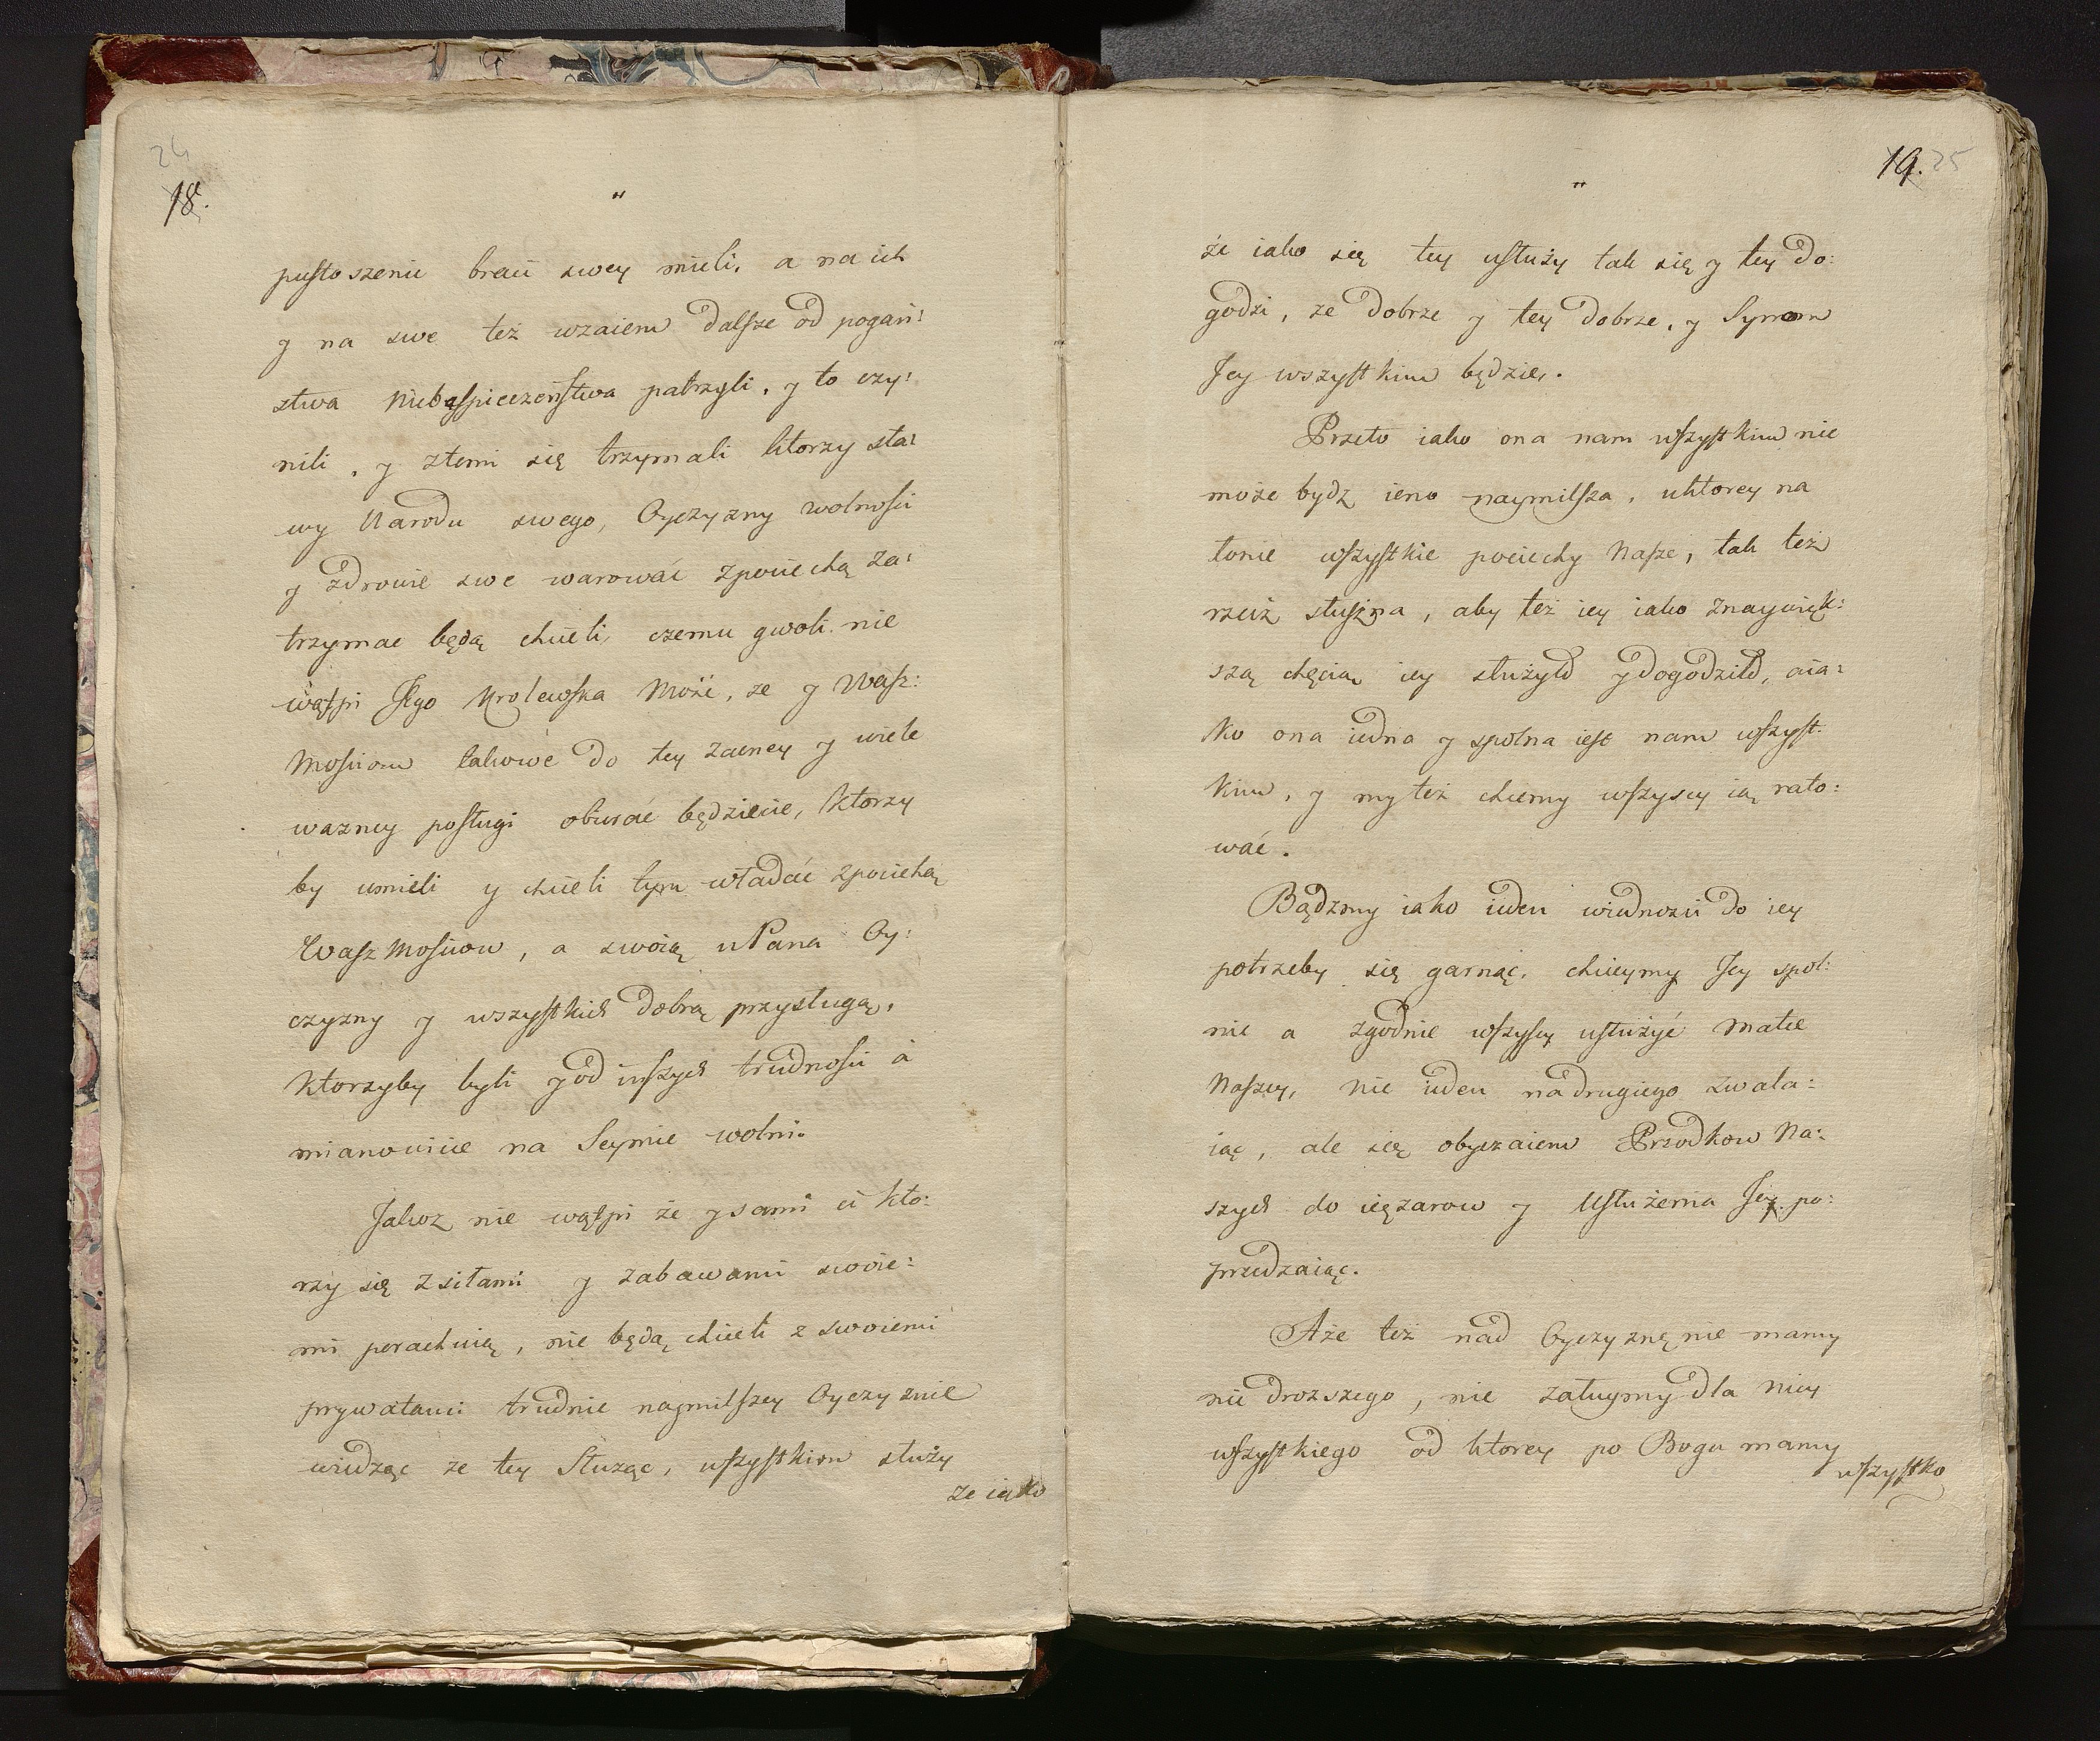 24
18.
"
pustoszenie braci swey mieli, a na ich
y na swe też wzaiem dalsze od pogań:
stwa niebespieczeństwa patrzyli, y to czy:
nili, y ztemi się trzymali ktorzy sta:
wy Narodu swego, Oyczyzny wolnosci
y zdrowie swe warować zpociechą za:
trzymac będą chcieli, czemu gwoli nie
wątpi Jego Krolewska Mość, ze y Wasz:
Mosciom takowe do tey zacney y wiele
wazney posługi obierać będziecie, ktorzy
by umieli y chcieli tym władać zpociechą
Wasz Mosciow, a swoią u Pana Oy:
czyzny y wszystkich dobrą przysługą,
Ktorzyby byli y od inszych trudnosci a
mianowicie na Seymie wolni.
Jakoz nie wątpi że y sami ci kto:
rzy się z siłami y zabawami swoie:
mi porachuią, nie będą chcieli z swoiemi
prywatami trudnie naymilszey Oyczyznie
widząc ze tey Służąc, wszystkim służy
ze iako
19. 25
"
że iako się tey usłuży tak się y tey do:
godzi, ze dobrze y tey dobrze, y Synom
Jey wszystkim będzie.
Przeto iako ona nam wszystkim nie
może bydz ieno naymilsza, uktorey na
łonie wszystkie pociechy Nasze, tak też
rzecz słuszna, aby też iey iako znaywięk:
szą chęcią iey służyło y dogodziło, aia:
ko ona iedna y spolna iest nam wszyst:
kim, y my też chcemy wszyscy ią rato:
wać.
Bądzmy iako ieden wiednozci do iey
potrzeby się garnąc, chcieymy Jey spol:
nie a zgodnie wszyscy usłużyć Matce
Naszey, nie ieden na drugiego zwala:
iąc, ale się obyczaiem Przodkow Na:
szych do ciężarow y Usłużenia Jey po:
przedzaiąc.
A że też nad Oyczyznę nie mamy
nic drozszego, nie żałuymy dla niey
wszystkiego od ktorey po Bogu mamy
wszystko